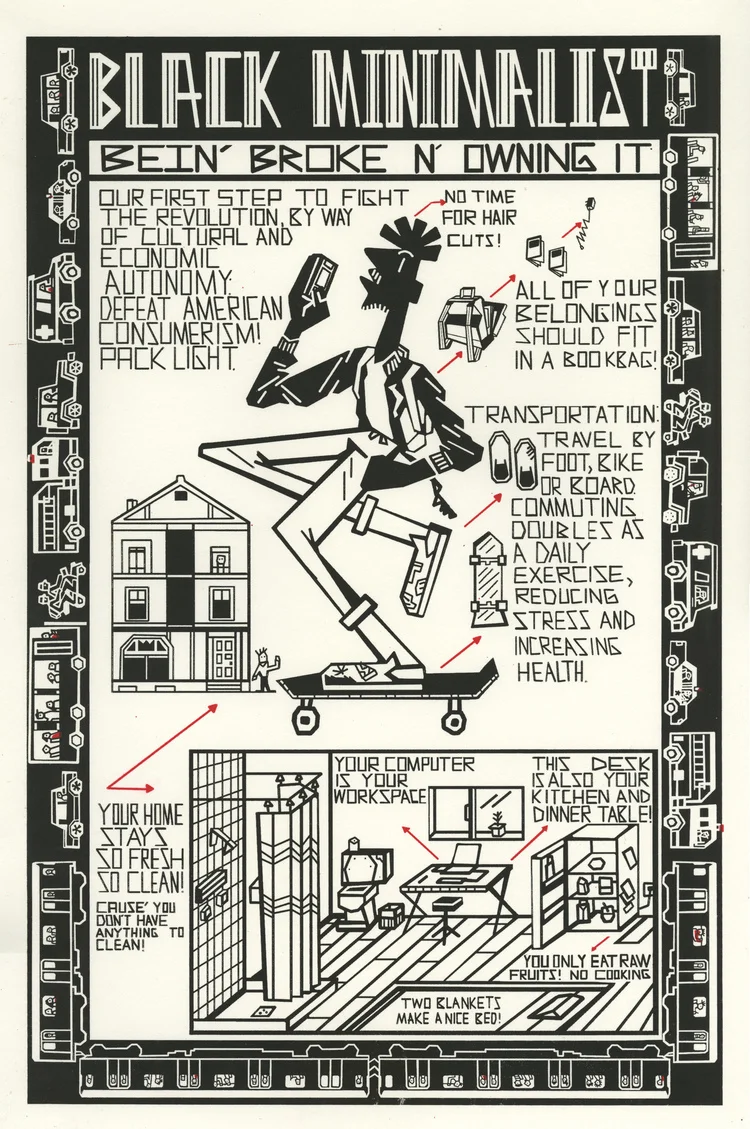 BLACK MINIMALIST
BEIN' BROKE N' OWNING IT
OUR FIRST STEP TO FIGHT
THE REVOLUTION, BY WAY
OF CULTURAL AND
ECONOMIC
AUTONOMY.
DEFEAT AMERICAN
CONSUMERISM!
PACK LIGHT.
NO TIME
FOR HAIR
CUTS!
ALL OF YOUR
BELONGINGS
SHOULD FIT
IN A BOOKBAG!
TRANSPORTATION:
TRAVEL BY
FOOT, BIKE
OR BOARD.
COMMUTING
DOUBLES AS
A DAILY
EXERCISE,
REDUCING
STRESS AND
INCREASING
HEALTH.
YOUR HOME
STAYS
SO FRESH
SO CLEAN!
CAUSE' YOU
DON'T HAVE
ANYTHING TO
CLEAN!
YOUR COMPUTER
IS YOUR
WORKSPACE
THIS DESK
IS ALSO YOUR
KITCHEN AND
DINNER TABLE!
YOU ONLY EAT RAW
FRUITS! NO COOKING
TWO BLANKETS
MAKE A NICE BED!